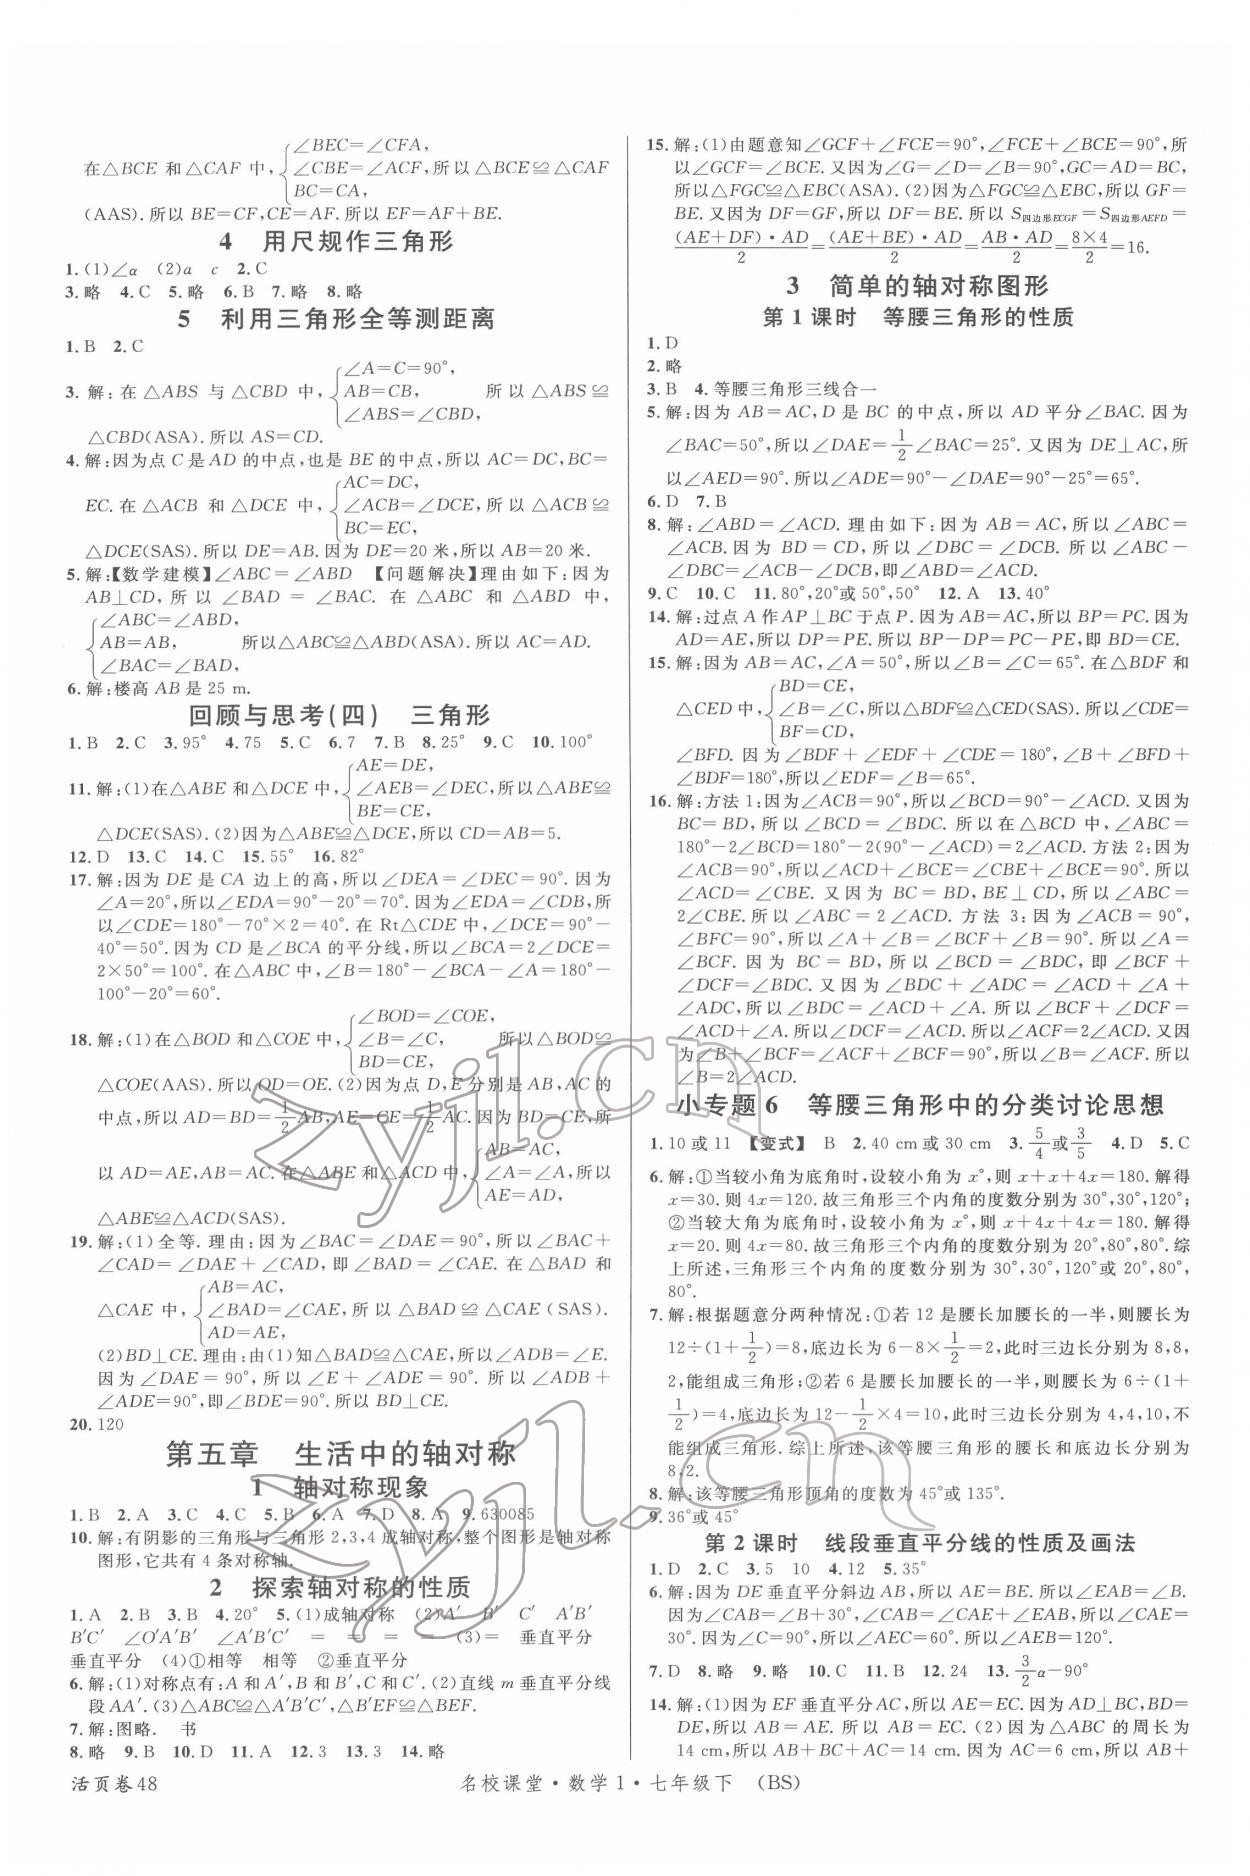 ∠BEC=∠CFA,
在△BCE 和△CAF 中,{∠CBE=∠ACF,所以△BCE≌△CAF
BC=CA,
(AAS).所以 BE=CF,CE=AF.所以 EF=AF+BE.
4 用尺规作三角形
1.(1)∠α (2)a c 2.C
3.略 4.C 5.略 6.B 7.略 8.略
5 利用三角形全等测距离
1.B 2.C
∠A=C=90°,
3.解:在△ABS 与△CBD 中,{AB=CB, 所以△ABS≌
∠ABS=∠CBD,
△CBD(ASA).所以 AS=CD.
4.解:因为点 C 是 AD 的中点,也是 BE 的中点,所以 AC=DC,BC=
AC=DC,
EC.在△ACB 和△DCE 中,{∠ACB=∠DCE,所以△ACB≌
BC=EC,
△DCE(SAS).所以 DE=AB.因为 DE=20 米,所以 AB=20 米.
5.解:【数学建模】∠ABC=∠ABD 【问题解决】理由如下:因为
AB⊥CD,所以∠BAD=∠BAC.在△ABC 和△ABD 中,
∠ABC=∠ABD,
{AB=AB, 所以△ABC≌△ABD(ASA).所以 AC=AD.
∠BAC=∠BAD,
6.解:楼高 AB 是 25 m.
回顾与思考(四) 三角形
1.B 2.C 3.95° 4.75 5.C 6.7 7.B 8.25° 9.C 10.100°
AE=DE,
11.解:(1)在△ABE 和△DCE 中,{∠AEB=∠DEC,所以△ABE≌
BE=CE,
△DCE(SAS).(2)因为△ABE≌△DCE,所以 CD=AB=5.
12.D 13.C 14.C 15.55° 16.82°
17.解:因为 DE 是 CA 边上的高,所以∠DEA=∠DEC=90°.因为
∠A=20°,所以∠EDA=90°-20°=70°.因为∠EDA=∠CDB,所
以∠CDE=180°-70°×2=40°.在 Rt△CDE 中,∠DCE=90°-
40°=50°.因为 CD 是∠BCA 的平分线,所以∠BCA=2∠DCE=
2×50°=100°.在△ABC 中,∠B=180°-∠BCA-∠A=180°-
100°-20°=60°.
∠BOD=∠COE,
18.解:(1)在△BOD 和△COE 中,{∠B=∠C, 所以△BOD≌
BD=CE,
△COE(AAS).所以 OD=OE.(2)因为点 D,E 分别是 AB,AC 的
中点,所以 AD=BD=1/2AB,AE=CE=1/2AC.因为 BD=CE,所
AB=AC,
以 AD=AE,AB=AC.在△ABE 和△ACD 中,{∠A=∠A,所以
AE=AD,
△ABE≌△ACD(SAS).
19.解:(1)全等.理由:因为∠BAC=∠DAE=90°,所以∠BAC+
∠CAD=∠DAE+∠CAD,即∠BAD=∠CAE.在△BAD 和
AB=AC,
△CAE 中,{∠BAD=∠CAE,所以△BAD≌△CAE(SAS).
AD=AE,
(2)BD⊥CE.理由:由(1)知△BAD≌△CAE,所以∠ADB=∠E.
因为∠DAE=90°,所以∠E+∠ADE=90°.所以∠ADB+
∠ADE=90°,即∠BDE=90°.所以 BD⊥CE.
20.120
第五章 生活中的轴对称
1 轴对称现象
1.B 2.A 3.C 4.C 5.B 6.A 7.D 8.A 9.630085
10.解:有阴影的三角形与三角形 2,3,4 成轴对称,整个图形是轴对称
图形,它共有 4 条对称轴.
2 探索轴对称的性质
1.A 2.B 3.B 4.20° 5.(1)成轴对称 (2)A′ B′ C′ A′B′
B′C′ ∠O′A′B′ ∠A′B′C′ = = = = (3)= 垂直平分
垂直平分 (4)①相等 相等 ②垂直平分
6.解:(1)对称点有:A 和 A′,B 和 B′,C 和 C′.(2)直线 m 垂直平分线
段 AA′.(3)△ABC≌△A′B′C′,△B′EF≌△BEF.
7.解:图略. 书
8.略 9.B 10.D 11.A 12.3 13.3 14.略
活页卷 48
15.解:(1)由题意知∠GCF+∠FCE=90°,∠FCE+∠BCE=90°,所
以∠GCF=∠BCE.又因为∠G=∠D=∠B=90°,GC=AD=BC,
所以△FGC≌△EBC(ASA).(2)因为△FGC≌△EBC,所以 GF=
BE.又因为 DF=GF,所以 DF=BE.所以 S四边形ECGF=S四边形AEFD=
(AE+DF)·AD/2=(AE+BE)·AD/2=AB·AD/2=8×4/2=16.
3 简单的轴对称图形
第 1 课时 等腰三角形的性质
1.D
2.略
3.B 4.等腰三角形三线合一
5.解:因为 AB=AC,D 是 BC 的中点,所以 AD 平分∠BAC.因为
∠BAC=50°,所以∠DAE=1/2∠BAC=25°.又因为 DE⊥AC,所
以∠AED=90°.所以∠ADE=90°-∠DAE=90°-25°=65°.
6.D 7.B
8.解:∠ABD=∠ACD.理由如下:因为 AB=AC,所以∠ABC=
∠ACB.因为 BD=CD,所以∠DBC=∠DCB.所以∠ABC-
∠DBC=∠ACB-∠DCB,即∠ABD=∠ACD.
9.C 10.C 11.80°,20°或 50°,50° 12.A 13.40°
14.解:过点 A 作 AP⊥BC 于点 P.因为 AB=AC,所以 BP=PC.因为
AD=AE,所以 DP=PE.所以 BP-DP=PC-PE,即 BD=CE.
15.解:因为 AB=AC,∠A=50°,所以∠B=∠C=65°.在△BDF 和
BD=CE,
△CED 中,{∠B=∠C,所以△BDF≌△CED(SAS).所以∠CDE=
BF=CD,
∠BFD.因为∠BDF+∠EDF+∠CDE=180°,∠B+∠BFD+
∠BDF=180°,所以∠EDF=∠B=65°.
16.解:方法 1:因为∠ACB=90°,所以∠BCD=90°-∠ACD.又因为
BC=BD,所以∠BCD=∠BDC.所以在△BCD 中,∠ABC=
180°-2∠BCD=180°-2(90°-∠ACD)=2∠ACD.方法 2:因为
∠ACB=90°,所以∠ACD+∠BCE=∠CBE+∠BCE=90°.所以
∠ACD=∠CBE.又因为 BC=BD,BE⊥CD,所以∠ABC=
2∠CBE.所以∠ABC=2∠ACD.方法 3:因为∠ACB=90°,
∠BFC=90°,所以∠A+∠B=∠BCF+∠B=90°.所以∠A=
∠BCF.因为 BC=BD,所以∠BCD=∠BDC,即∠BCF+
∠DCF=∠BDC.又因为∠BDC+∠ADC=∠ACD+∠A+
∠ADC,所以∠BDC=∠ACD+∠A.所以∠BCF+∠DCF=
∠ACD+∠A.所以∠DCF=∠ACD.所以∠ACF=2∠ACD.又因
为∠B+∠BCF=∠ACF+∠BCF=90°,所以∠B=∠ACF.所以
∠B=2∠ACD.
小专题 6 等腰三角形中的分类讨论思想
1.10 或 11 【变式】 B 2.40 cm 或 30 cm 3.5/4或3/5 4.D 5.C
6.解:①当较小角为底角时,设较小角为 x°,则 x+x+4x=180.解得
x=30.则 4x=120.故三角形三个内角的度数分别为 30°,30°,120°;
②当较大角为底角时,设较小角为 x°,则 x+4x+4x=180.解得
x=20.则 4x=80.故三角形三个内角的度数分别为 20°,80°,80°.综
上所述,三角形三个内角的度数分别为 30°,30°,120°或 20°,80°,
80°.
7.解:根据题意分两种情况:①若 12 是腰长加腰长的一半,则腰长为
12÷(1+1/2)=8,底边长为 6-8×1/2=2,此时三边长分别为 8,8,
2,能组成三角形;②若 6 是腰长加腰长的一半,则腰长为 6÷(1+
1/2)=4,底边长为 12-1/2×4=10,此时三边长分别为 4,4,10,不
能组成三角形.综上所述,该等腰三角形的腰长和底边长分别为
8,2.
8.解:该等腰三角形顶角的度数为 45°或 135°.
9.36°或 45°
第 2 课时 线段垂直平分线的性质及画法
1.D 2.C 3.5 10 4.12 5.35°
6.解:因为 DE 垂直平分斜边 AB,所以 AE=BE.所以∠EAB=∠B.
因为∠CAB=∠B+30°,∠CAB=∠CAE+∠EAB,所以∠CAE=
30°.因为∠C=90°,所以∠AEC=60°.所以∠AEB=120°.
7.D 8.略 9.略 10.C 11.B 12.24 13.3/2α-90°
14.解:(1)因为 EF 垂直平分 AC,所以 AE=EC.因为 AD⊥BC,BD=
DE,所以 AB=AE.所以 AB=EC.(2)因为△ABC 的周长为
14 cm,所以 AB+BC+AC=14 cm.因为 AC=6 cm,所以 AB+
名校课堂·数学 1·七年级下 (BS)
zyjl.cn
zyjl.cn